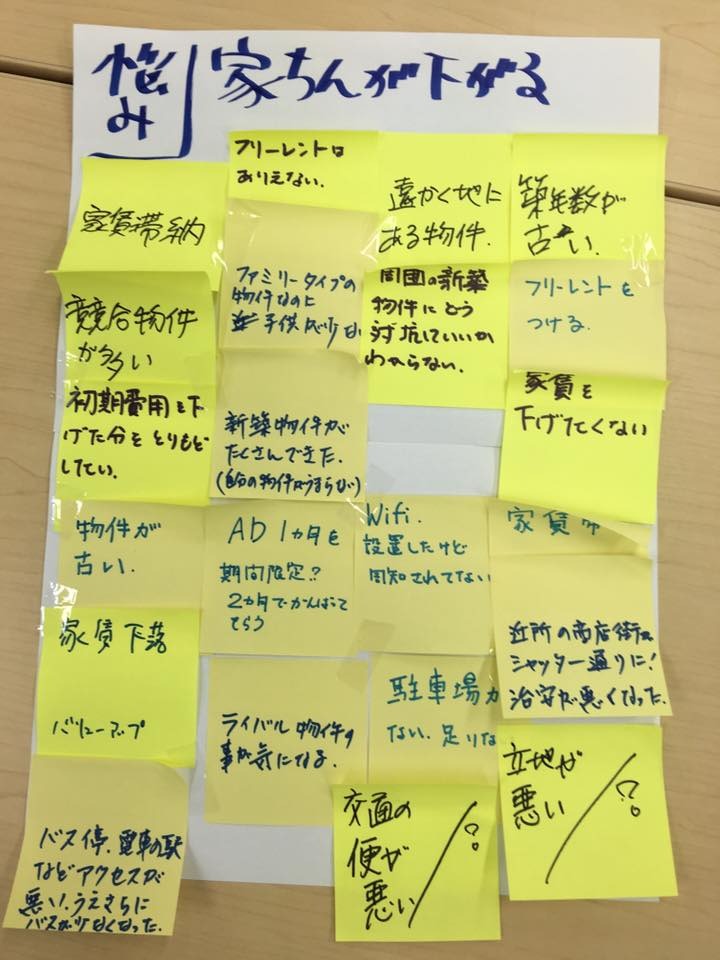 悩み
家ちんが下がる
フリーレントは
ありえない.
家賃滞納
遠かく地に
ある物件.
築年数が
古い.
ファミリータイプの
物件なのに
子供が少な
周囲の新築
物件にどう
対抗していいか
わからない.
フリーレントを
つける.
競合物件
が多い
初期費用を下
げた分をとりもど
してい.
新築物件が
たくさんできた.
(自分の物件がうまらない)
家賃を
下げたくない
物件が
古い.
AD 1ヵ月を
期間限定?
2ヵ月でがんばって
もらう
Wifi.
設置したけど
周知されてない
家賃
近所の商店街が
シャッター通りに!
治安が悪くなった.
家賃下落
バリューアップ
ライバル物件の
事が気になる.
駐車場が
ない.足りな
立地が
悪い/?
交通の
便が
悪い/?
バス停、電車の駅
などアクセスが
悪い.うえさらに
バスが少なくなった.